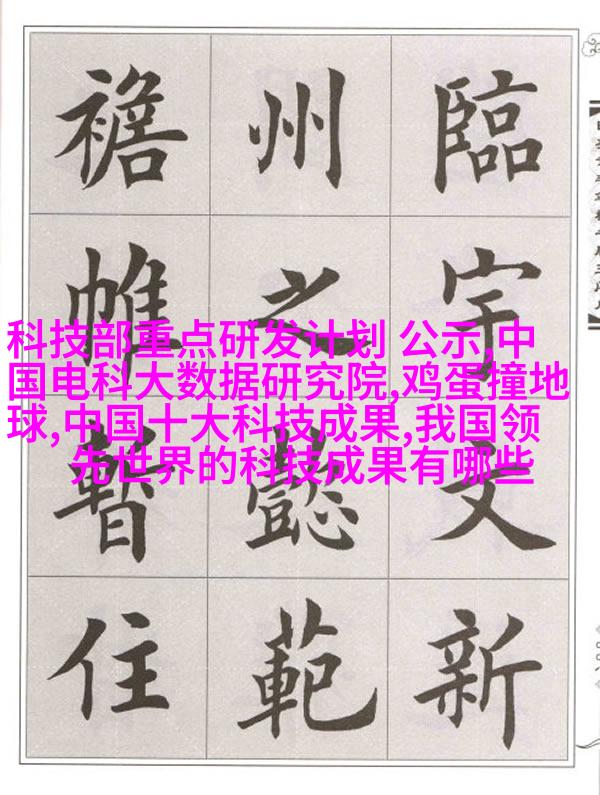 臨宇文新
州之懿範
襜帷暫住
科技部重点研发计划 公示,中
国电科大数据研究院,鸡蛋撞地
球,中国十大科技成果,我国领
先世界的科技成果有哪些